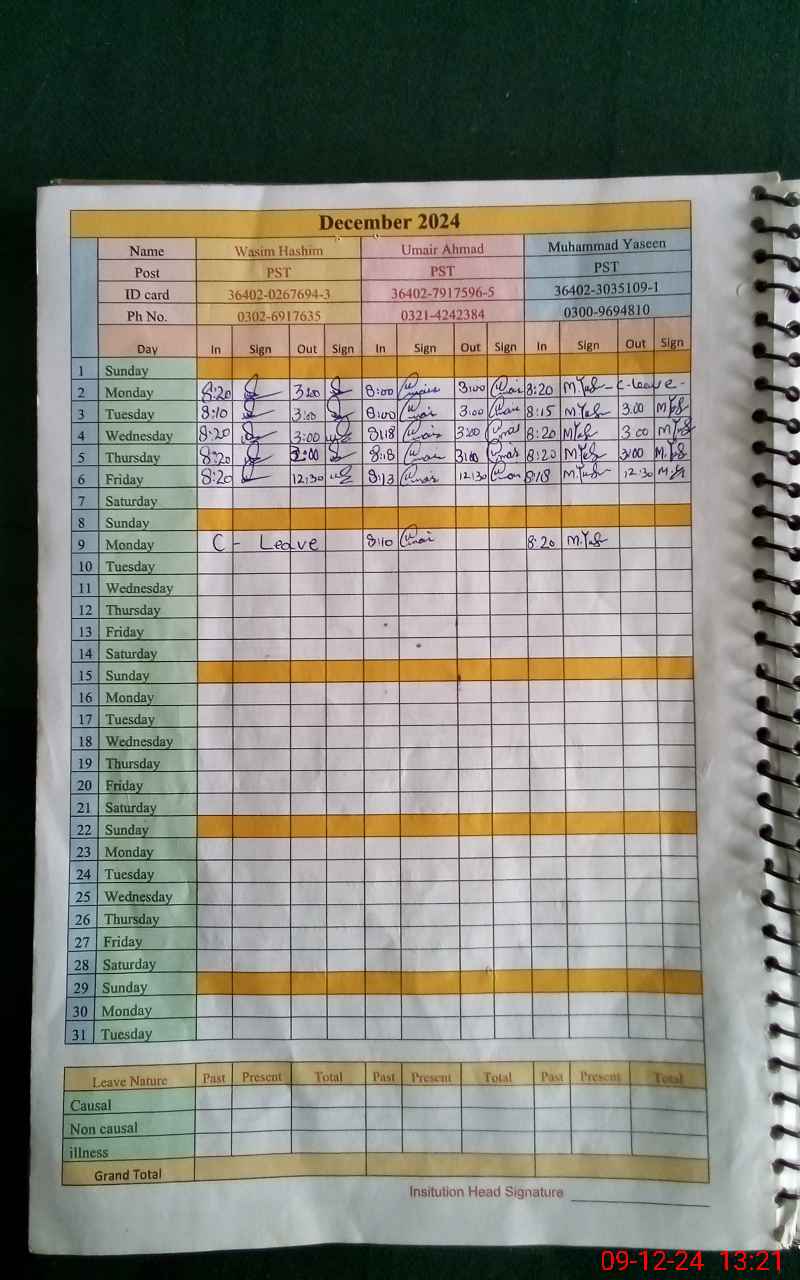 December 2024
Name Wasim Hashim Umair Ahmad Muhammad Yaseen
Post PST PST PST
ID card 36402-0267694-3 36402-7917596-5 36402-3035109-1
Ph No. 0302-6917635 0321-4242384 0300-9694810
Day In Sign Out Sign In Sign Out Sign In Sign Out Sign
1 Sunday
2 Monday 8:20 3:00 8:00 3:00 8:20 C-leave-
3 Tuesday 8:10 3:00 8:00 3:00 8:15 3:00
4 Wednesday 8:20 3:00 8:18 3:00 8:20 3:00
5 Thursday 8:20 3:00 8:18 3:00 8:20 3:00
6 Friday 8:20 12:30 8:13 12:30 8:18 12:30
7 Saturday
8 Sunday
9 Monday C - Leave 8:10 8:20
10 Tuesday
11 Wednesday
12 Thursday
13 Friday
14 Saturday
15 Sunday
16 Monday
17 Tuesday
18 Wednesday
19 Thursday
20 Friday
21 Saturday
22 Sunday
23 Monday
24 Tuesday
25 Wednesday
26 Thursday
27 Friday
28 Saturday
29 Sunday
30 Monday
31 Tuesday
Leave Nature Past Present Total Past Present Total Past Present Total
Causal
Non causal
illness
Grand Total
Insitution Head Signature
09-12-24 13:21